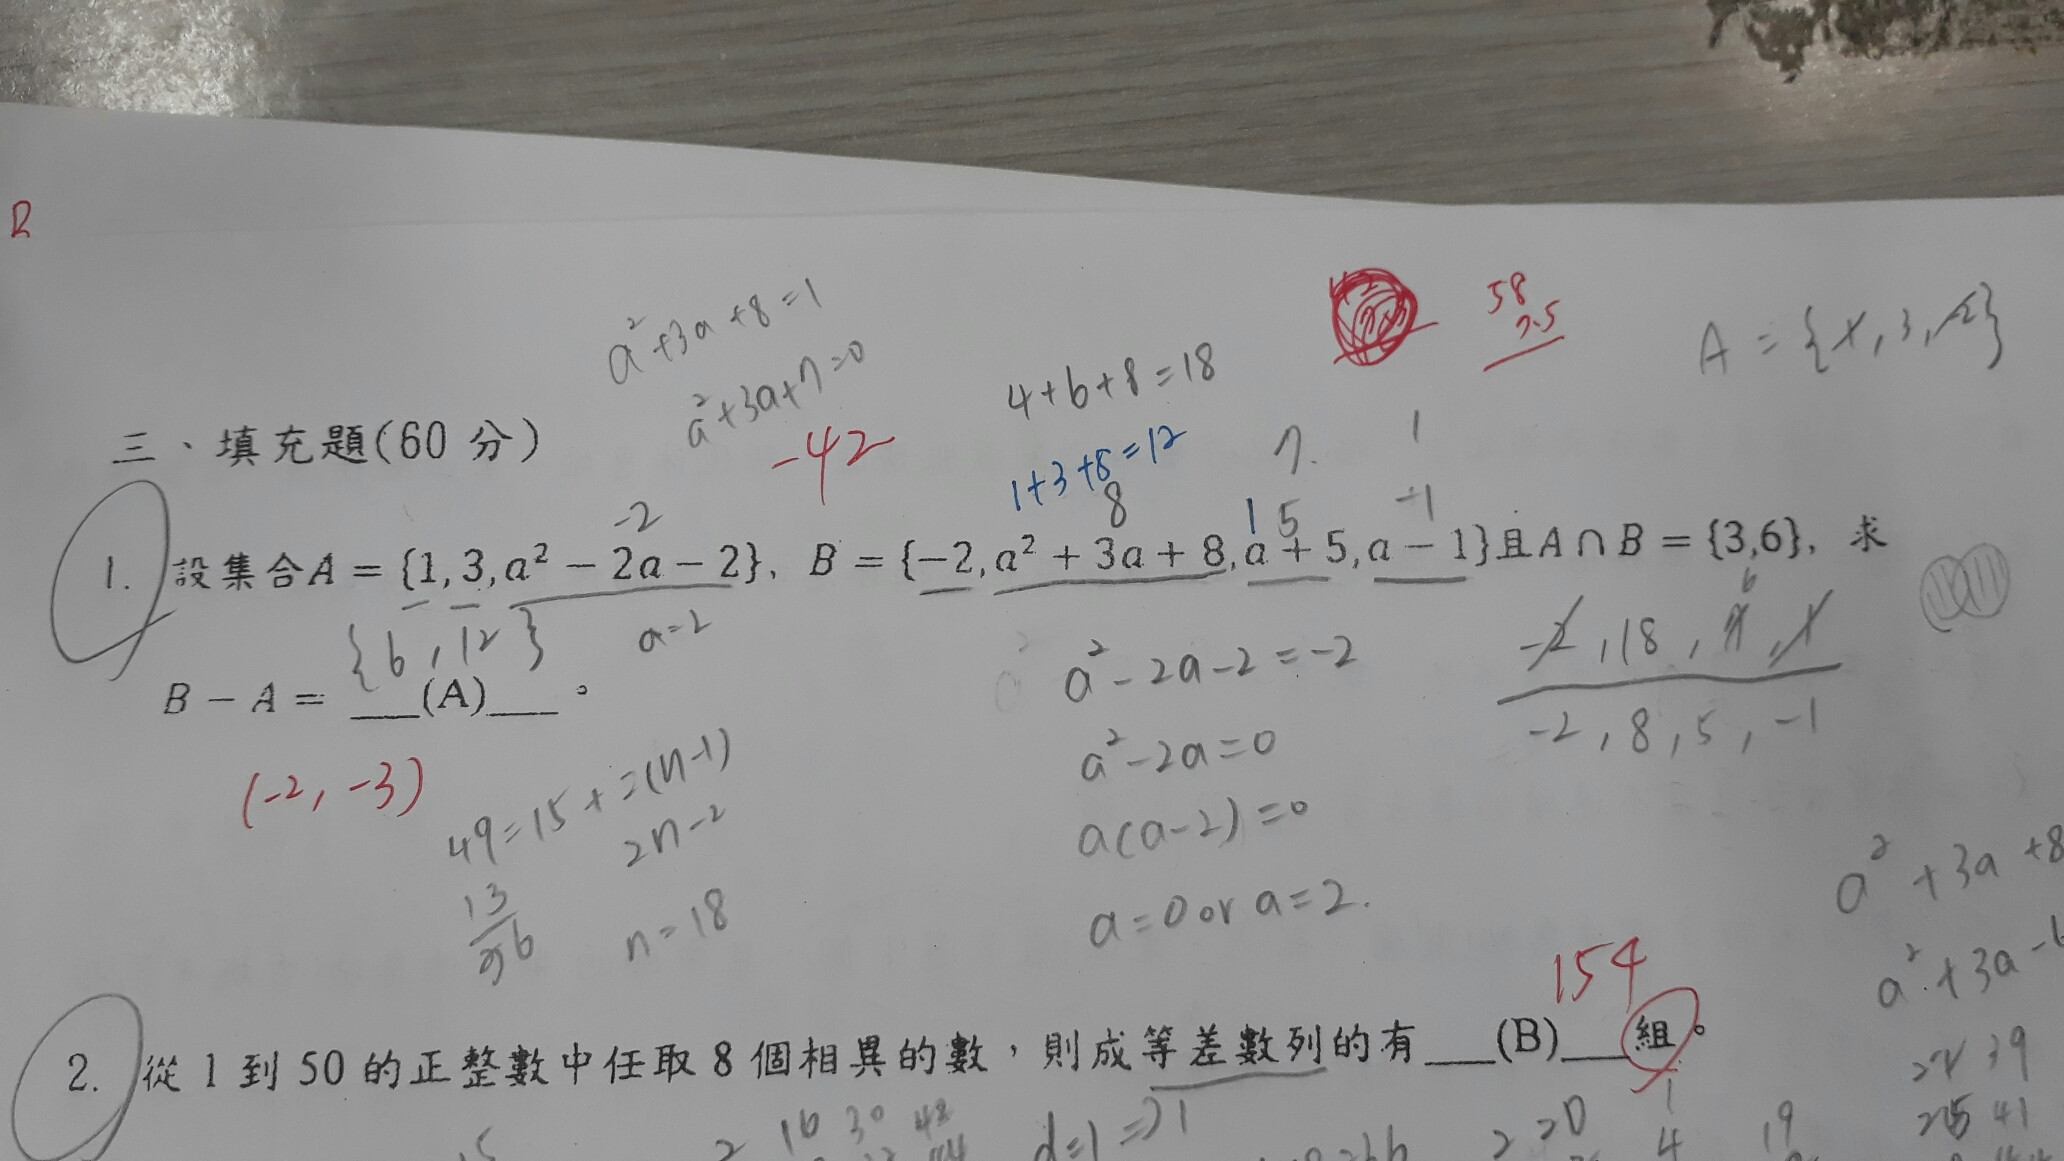 R
a²+3a+8=1
a²+3a+7=0
-42
4+6+8=18
1+3+8=12
58
7.5
A={1,3,-2}
三、填充題(60 分)
-2
8
1 5
7.
1
-1
1. 設集合A = {1,3,a² − 2a − 2}, B = {−2,a² + 3a + 8,a + 5,a − 1}且A ∩ B = {3,6}, 求
{6,12}
a=2
B − A = ___(A)___。
(-2, -3)
a²-2a-2=-2
a²-2a=0
a(a-2)=0
a=0 or a=2.
6
-2,18,7,1
-2,8,5,-1
2n-2
n=18
a²+3a+8
a²+3a-
154
2. 從 1 到 50 的正整數中任取 8 個相異的數,則成等差數列的有___(B)___組。
16 30
d=1 ⇒
2 20
4
19
39
41